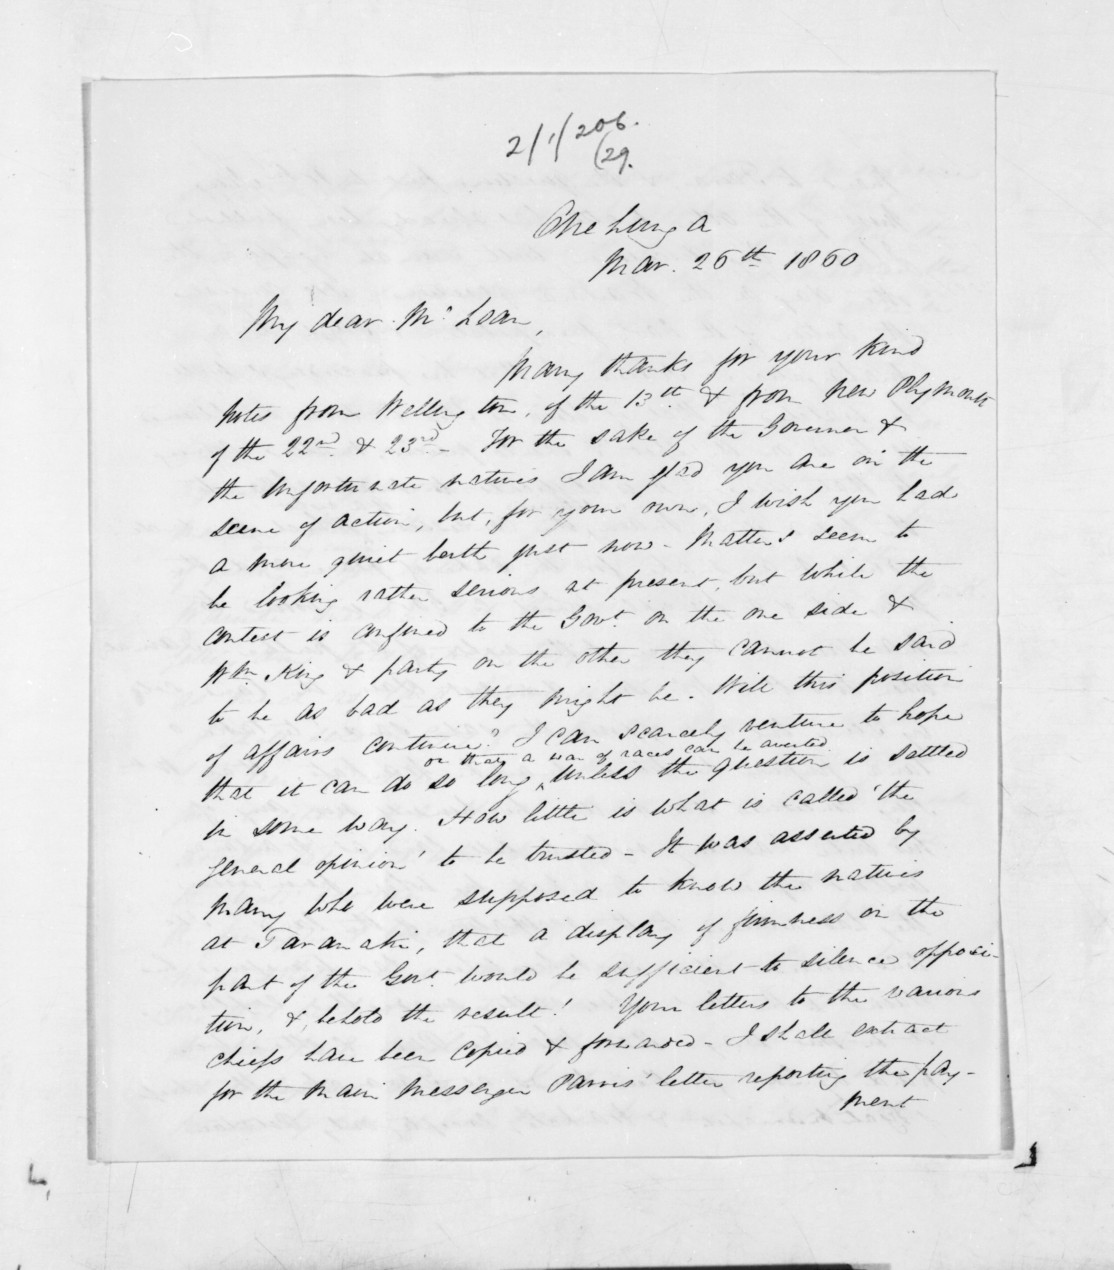 2/1/206.
(29.
Onehunga
Mar. 26th 1860
My dear Mc Lean,
Many thanks for your kind
notes from Wellington, of the 13th & from New Plymouth
of the 22nd & 23rd - For the sake of the Governor &
the unfortunate natives I am glad you are on the
scene of action, but, for your own, I wish you had
a more quiet berth just now - Matters seem to
be looking rather serious at present, but while the
contest is confined to the Govt on the one side &
Wm King & party on the other they cannot be said
to be as bad as they might be. Will this position
of affairs continue? I can scarcely venture to hope
or that a war of races can be averted
that it can do so long, unless the question is settled
in some way. How little is what is called 'the
general opinion' to be trusted - It was asserted by
many who were supposed to know the natives
at Taranaki, that a display of firmness on the
part of the Govt would be sufficient to silence opposi-
tion, &, behold the result! Your letters to the various
chiefs have been copied & forwarded - I shall extract
for the Maori Messenger Parris' letter reporting the pay-
ment